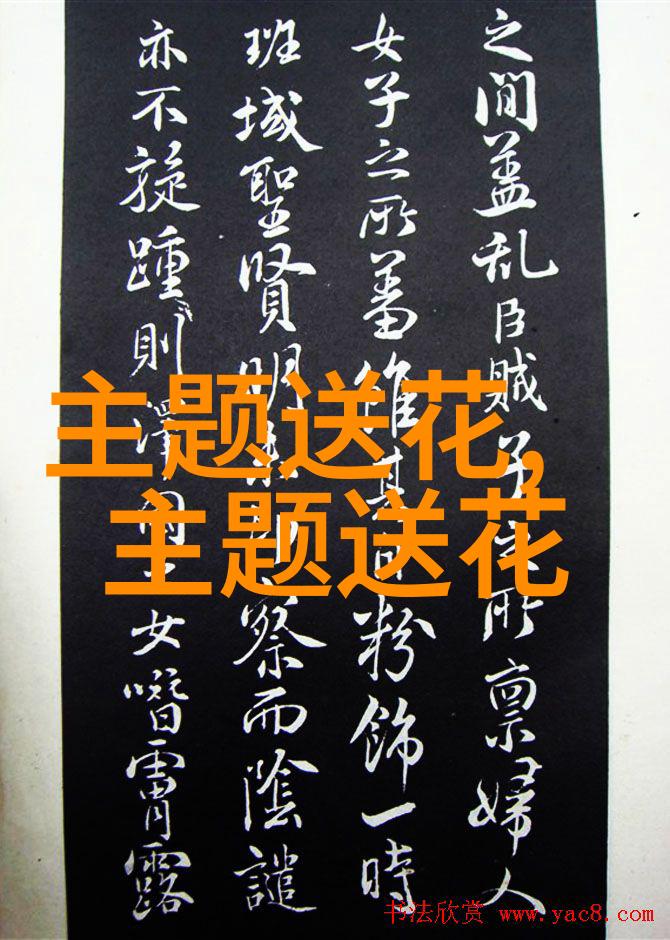 之间盖乱臣贼子
所禀婦人
女子之所蓄
粉飾一時
班域聖賢明
察而陰譴
亦不旋踵則澤
女㗸霄露
主题送花,
主题送花
书法欣赏 www.yac8.com